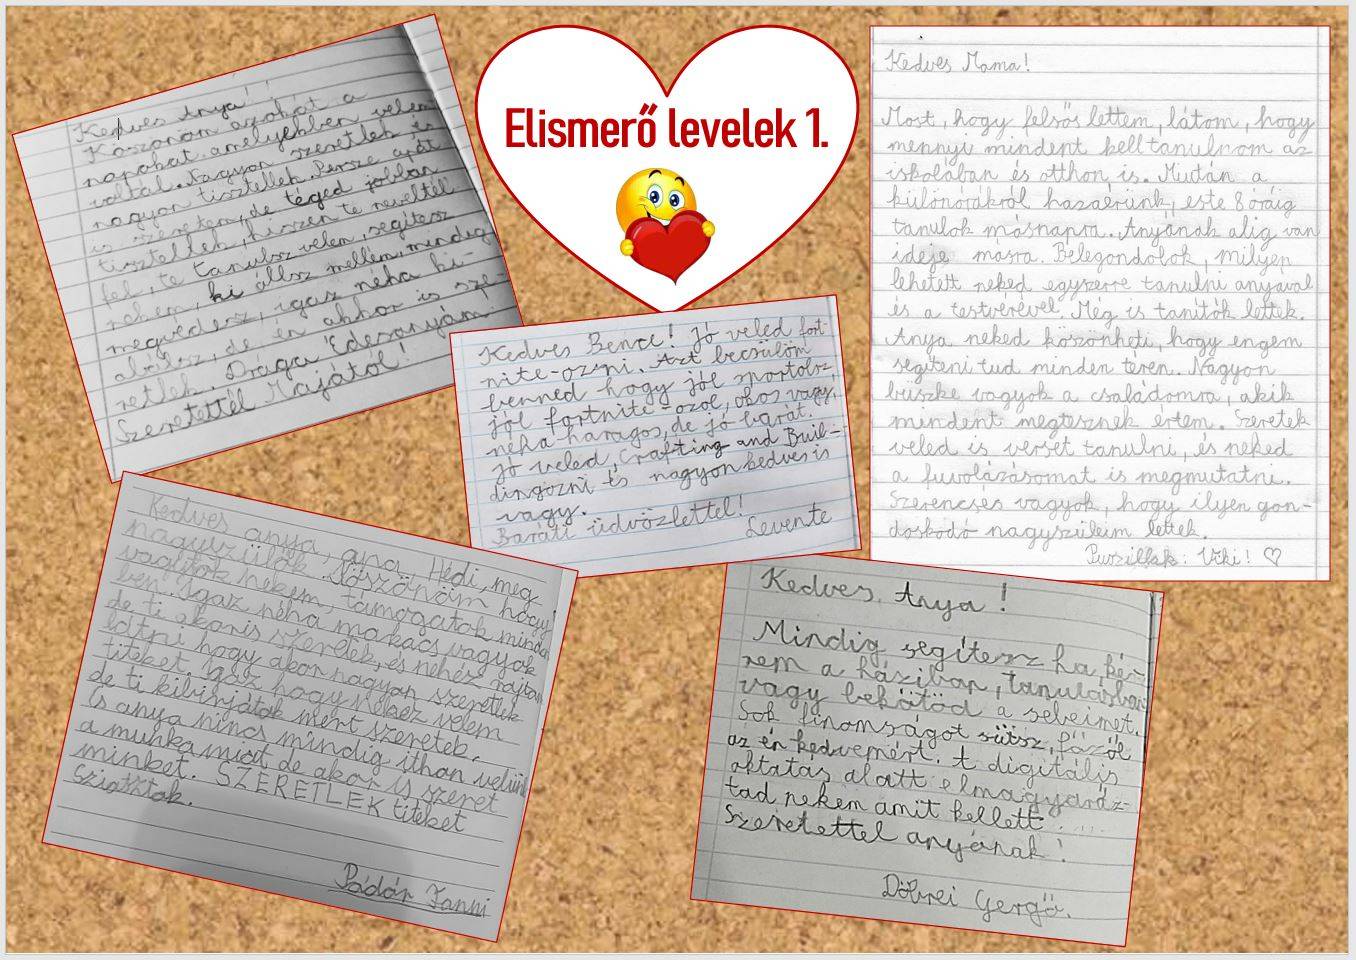 Elismerő levelek 1.
Kedves Anya!
Köszönöm azokat a
napokat amelyekben velem
voltál. Nagyon szeretlek és
nagyon tisztellek. Persze apát
is szeretem, de téged jobban
tisztellek, hiszen te neveltél
fel, te tanulsz velem, segítesz
nekem, ki állsz mellém, mindig
megvédesz, igaz néha ki-
akadsz, de én akkor is sze-
retlek. Drága Édesanyám
Szeretettel Majától!
Kedves Bence! Jó veled fort-
nite-ozni. Azt becsülöm
benned hogy jól sportolsz,
jól fortnite-ozol, okos vagy,
néha haragos, de jó barát.
Jó veled Crafting and Buil-
dingozni és nagyon kedves is
vagy.
Baráti üdvözlettel!
Levente
Kedves Mama!
Most, hogy felsős lettem, látom, hogy
mennyi mindent kell tanulnom az
iskolában és otthon is. Miután a
különórákról hazaérünk, este 8 óráig
tanulok másnapra. Anyának alig van
ideje másra. Belegondolok, milyen
lehetett neked egyszerre tanulni anyával
és a testvérével. Még is tanítók lettek.
Anya neked köszönheti, hogy engem
segíteni tud minden téren. Nagyon
büszke vagyok a családomra, akik
mindent megtesznek értem. Szeretek
veled is verset tanulni, és neked
a fuvolázásomat is megmutatni.
Szerencsés vagyok, hogy ilyen gon-
doskodó nagyszüleim lettek.
Puszillak: Viki! ♡
Kedves anya, apa, Hédi, meg
nagyszülők. Köszönöm hogy
vagytok nekem, támogatok minden
ben. Igaz néha makacs vagyok
de ti akoris szerettek, és nehéz rajtam
látni hogy akor nagyon szeretlek
titeket. Igaz hogy nehéz velem
de ti kibirjátok mert szeretek.
És anya nincs mindig ithan velünk
a munka miat de akor is szeret
minket. SZERETLEK titeket
sziasztok.
Pádár Fanni
Kedves Anya!
Mindig segítesz ha kér-
rem a háziban, tanulásban
vagy bekötöd a sebeimet.
Sok finomságot sütsz, főzöl
az én kedvemért. A digitális
oktatás alatt elmagyaráz-
tad nekem amit kellett....
Szeretettel anyának!
Döbrei Gergő.